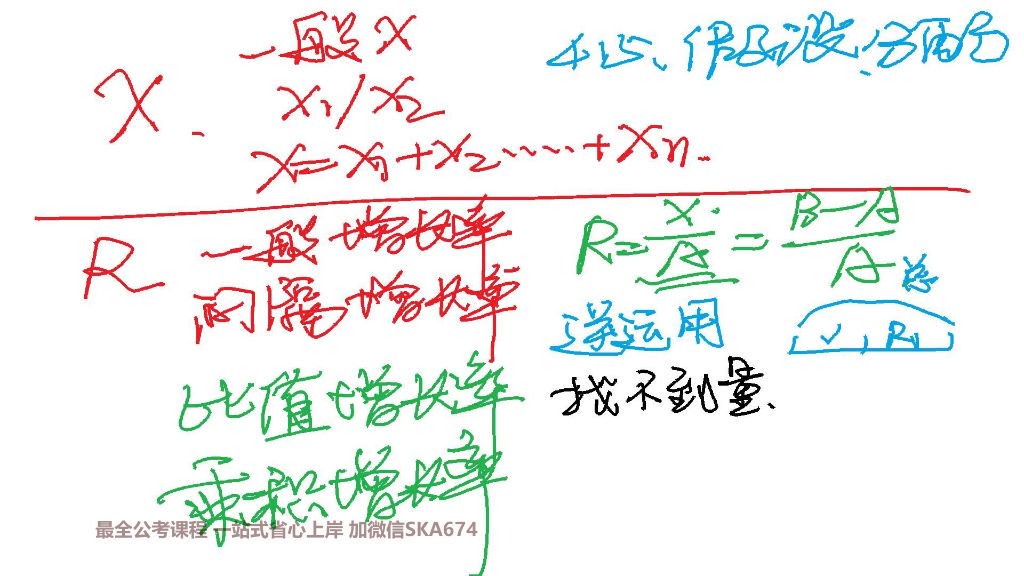 一般X
X.
X₁/X₂
X=X₁+X₂……+Xn.
核心、假设没分配
R
一般增长率
间隔增长率
比值增长率
乘积增长率
R=X/A=B-A/A
总
逆运用
√, R₁
找不到量、
最全公考课程 一站式省心上岸 加微信SKA674